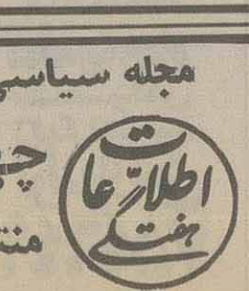 مجله سیاسی
اطلاعات
هفتگی